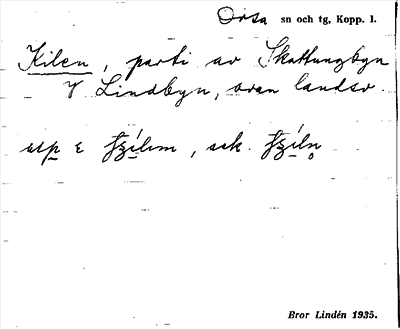 Orsa sn och tg, Kopp. l.
Kilen, parti av Skattungbyn
V Lindbyn, ovan landsv.
ack.
Bror Lindén 1935.